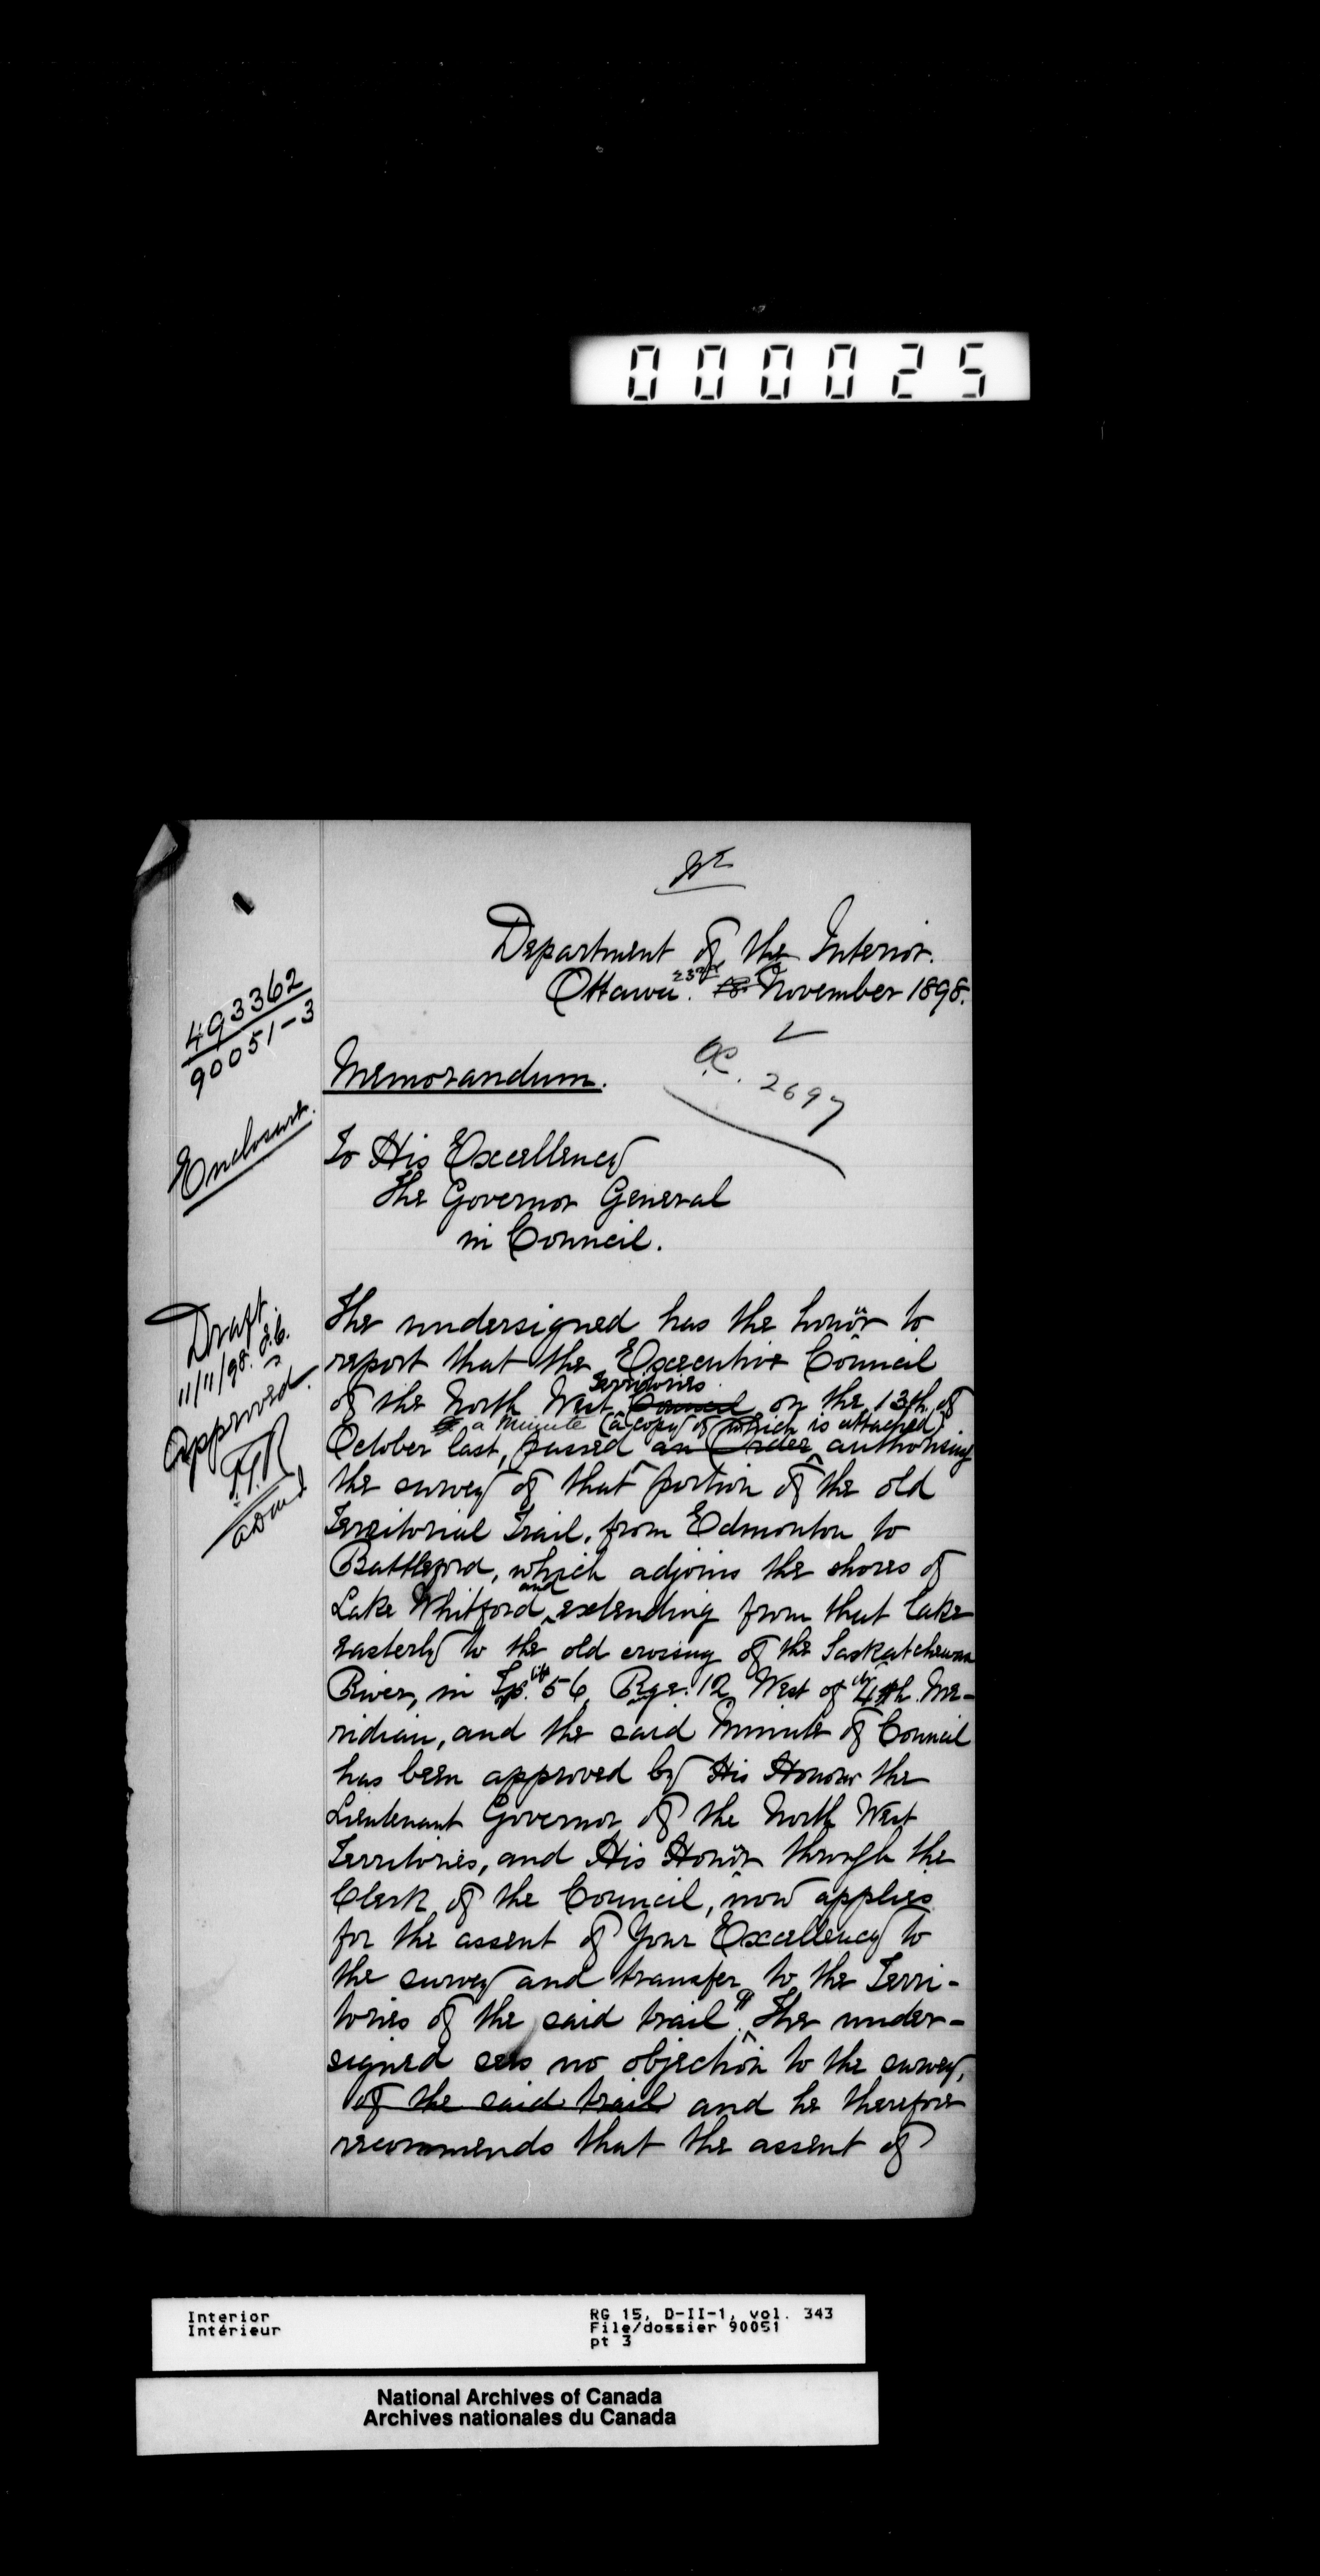 000025
Department of the Interior.
Ottawa. 23rd 18 November 1898.
493362
90051-3
OC. 2697
Memorandum.
Enclosure.
To His Excellency
The Governor General
in Council.
Draft.
11/11/98.
Approved.
The undersigned has the honor to
report that the Executive Council
Territories
of the North West Council on the 13th of
a Minute (a copy of which is attached)
October last, passed an Order authorising
the survey of that portion of the old
Territorial Trail, from Edmonton to
Battleford, which adjoins the shores of
and
Lake Whitford, extending from that lake
easterly to the old crossing of the Saskatchewan
River, in Tp. 56, Rge. 12 West of 4th Me-
ridian, and the said Minute of Council
has been approved by His Honour the
Lieutenant Governor of the North West
Territories, and His Honor through the
Clerk of the Council, now applies
for the assent of Your Excellency to
the survey and transfer to the Terri-
tories of the said trail. The under-
signed sees no objection to the survey,
of the said trail and he therefore
recommends that the assent of
Interior
Intérieur
RG 15, D-II-1, vol. 343
File/dossier 90051
pt 3
National Archives of Canada
Archives nationales du Canada